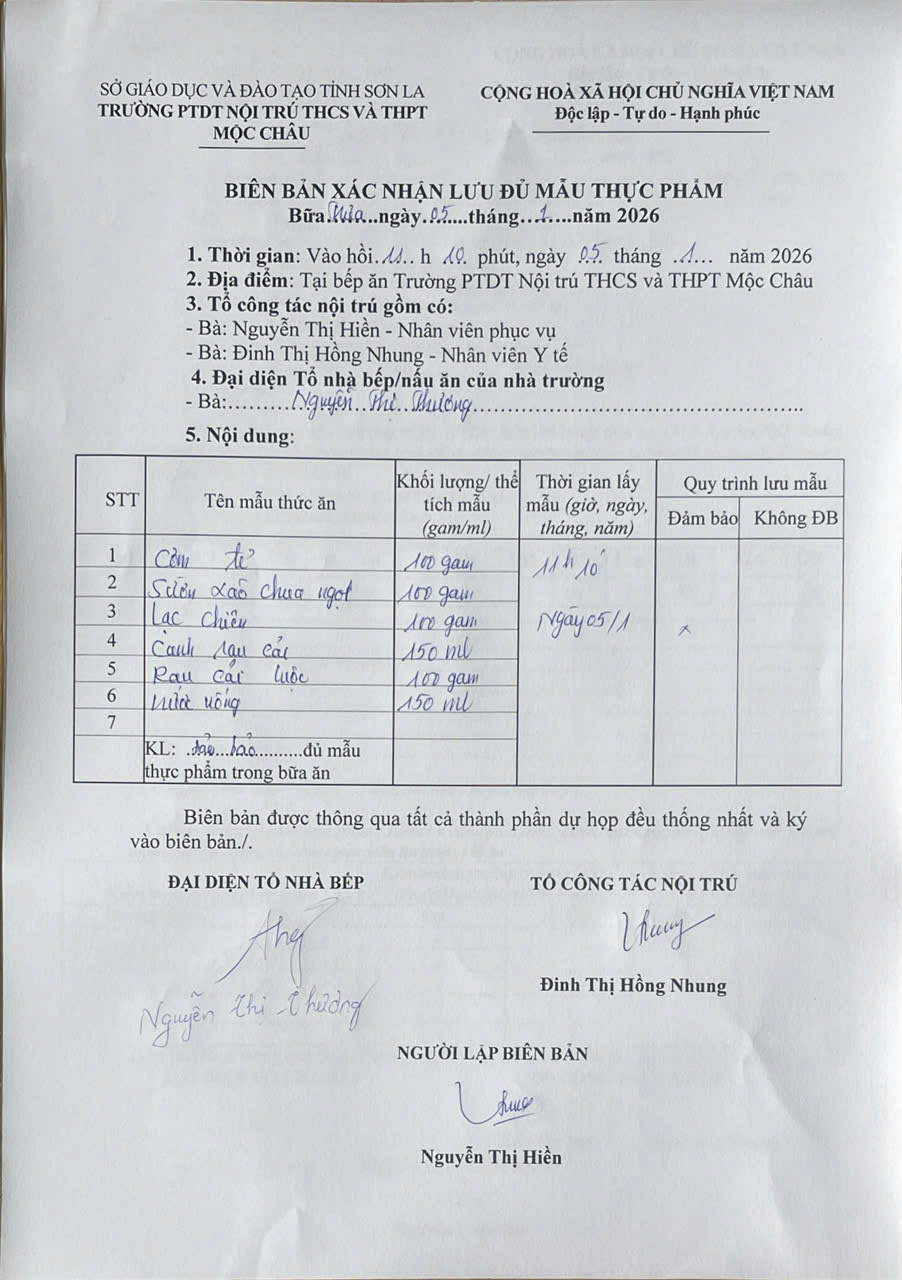 SỞ GIÁO DỤC VÀ ĐÀO TẠO TỈNH SƠN LA
TRƯỜNG PTDT NỘI TRÚ THCS VÀ THPT
MỘC CHÂU
CỘNG HOÀ XÃ HỘI CHỦ NGHĨA VIỆT NAM
Độc lập - Tự do - Hạnh phúc
BIÊN BẢN XÁC NHẬN LƯU ĐỦ MẪU THỰC PHẨM
Bữa.trưa...ngày.05....tháng...1....năm 2026
1. Thời gian: Vào hồi.11.. h 10. phút, ngày 05. tháng .1... năm 2026
2. Địa điểm: Tại bếp ăn Trường PTDT Nội trú THCS và THPT Mộc Châu
3. Tổ công tác nội trú gồm có:
- Bà: Nguyễn Thị Hiền - Nhân viên phục vụ
- Bà: Đinh Thị Hồng Nhung - Nhân viên Y tế
4. Đại diện Tổ nhà bếp/nấu ăn của nhà trường
- Bà:.........Nguyễn..Thị..Thương..................................................
5. Nội dung:
STT Tên mẫu thức ăn Khối lượng/ thể tích mẫu (gam/ml) Thời gian lấy mẫu (giờ, ngày, tháng, năm) Quy trình lưu mẫu
Đảm bảo Không ĐB
1 Cơm tẻ 100 gam 11h10
2 Sườn xào chua ngọt 100 gam
3 Lạc chiên 100 gam Ngày 05/1 x
4 Canh rau cải 150 ml
5 Rau cải luộc 100 gam
6 nước uống 150 ml
7
KL: .đảm..bảo..........đủ mẫu
thực phẩm trong bữa ăn
Biên bản được thông qua tất cả thành phần dự họp đều thống nhất và ký
vào biên bản./.
ĐẠI DIỆN TỔ NHÀ BẾP
TỔ CÔNG TÁC NỘI TRÚ
Nhung
Đinh Thị Hồng Nhung
Nguyễn Thị Thương
NGƯỜI LẬP BIÊN BẢN
Nguyễn Thị Hiền